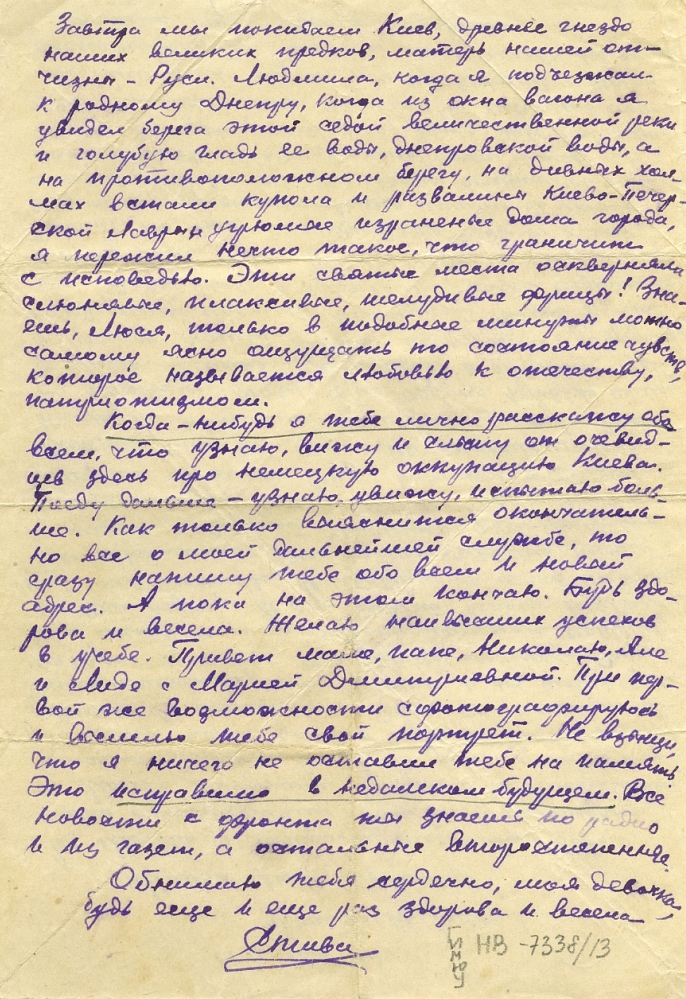 Завтра мы покидаем Киев, древнее гнездо
наших великих предков, матерь нашей от-
чизны – Руси. Людмила, когда я подъезжал
к родному Днепру, когда из окна вагона я
увидел берега этой седой величественной реки
и голубую гладь ее воды, днепровской воды, а
на противоположном берегу, на дивных хол-
мах встали купола и развалины Киево-Печер-
ской Лавры угрюмые израненые дома города,
я пережил нечто такое, что граничит
с исповедью. Эти святые места оскверняли
слюнявые, плаксивые, шелудивые фрицы! Зна-
ешь, Люся, только в подобные минуты можно
самому ясно ощущать то состояние чувств,
которое называется любовью к отечеству,
патриотизмом.
Когда-нибудь я тебе лично расскажу обо
всем, что узнаю, вижу и слышу от очевид-
цев здесь про немецкую оккупацию Киева.
Поеду дальше – узнаю, увижу, испытаю боль-
ше. Как только выяснится окончатель-
но все о моей дальнейшей службе, то
сразу напишу тебе обо всем и новый
адрес. А пока на этом кончаю. Будь здо-
рова и весела. Желаю наивысших успехов
в учебе. Привет маме, папе, Николаю, Але
и Лиде с Марией Дмитриевной. При пер-
вой же возможности сфотографируюсь
и вышлю тебе свой портрет. Не взыщи,
что я ничего не оставил тебе на память.
Это исправлю в недалеком будущем. Все
новости с фронта ты знаешь по радио
и из газет, а остальные второстепенное.
Обнимаю тебя сердечно, моя девочка,
будь еще и еще раз здорова и весела
Стива
ГИМЮУ НВ-7338/13